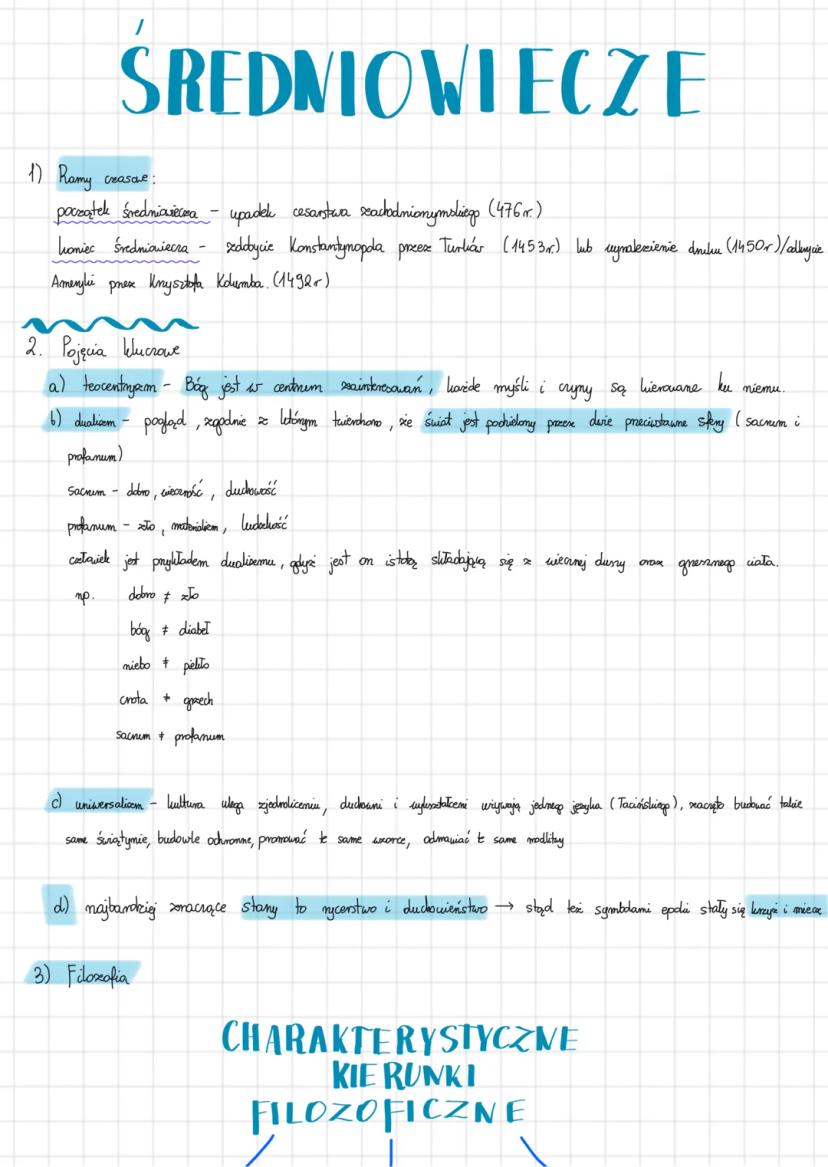 ŚREDNIOWIECZE
1) Ramy czasowe:
początek średniowiecza – upadek cesarstwa zachodniorzymskiego (476r.)
koniec średniowiecza – zdobycie Konstantynopola przez Turków (1453r.) lub wynalezienie druku (1450r)/odkrycie
Ameryki przez Krzysztofa Kolumba. (1492r)
2. Pojęcia kluczowe
a) teocentryzm – Bóg jest w centrum zainteresowań, każde myśli i czyny są kierowane ku niemu.
b) dualizm – pogląd, zgodnie z którym twierdzono, że świat jest podzielony przez dwie przeciwstawne sfery (sacrum i
profanum)
sacrum – dobro, wieczność, duchowość
profanum – zło, materializm, ludzkość
człowiek jest przykładem dualizmu, gdyż jest on istotą składającą się z wiecznej duszy oraz grzesznego ciała.
np. dobro ≠ zło
bóg ≠ diabeł
niebo ≠ piekło
cnota ≠ grzech
sacrum ≠ profanum
c) uniwersalizm – kultura ulega zjednoliceniu, duchowni i wykształceni używają jednego języka (łacińskiego), zaczęto budować takie
same świątynie, budowle ochronne, promować te same wzorce, odmawiać te same modlitwy
d) najbardziej znaczące stany to rycerstwo i duchowieństwo → stąd też symbolami epoki stały się krzyż i miecz
3) Filozofia
CHARAKTERYSTYCZNE
KIERUNKI
FILOZOFICZNE